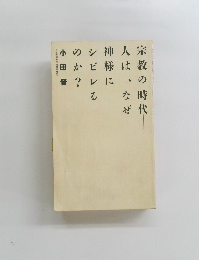 宗教の時代―
人は、なぜ
神様に
シビレる
のか?
小田晋